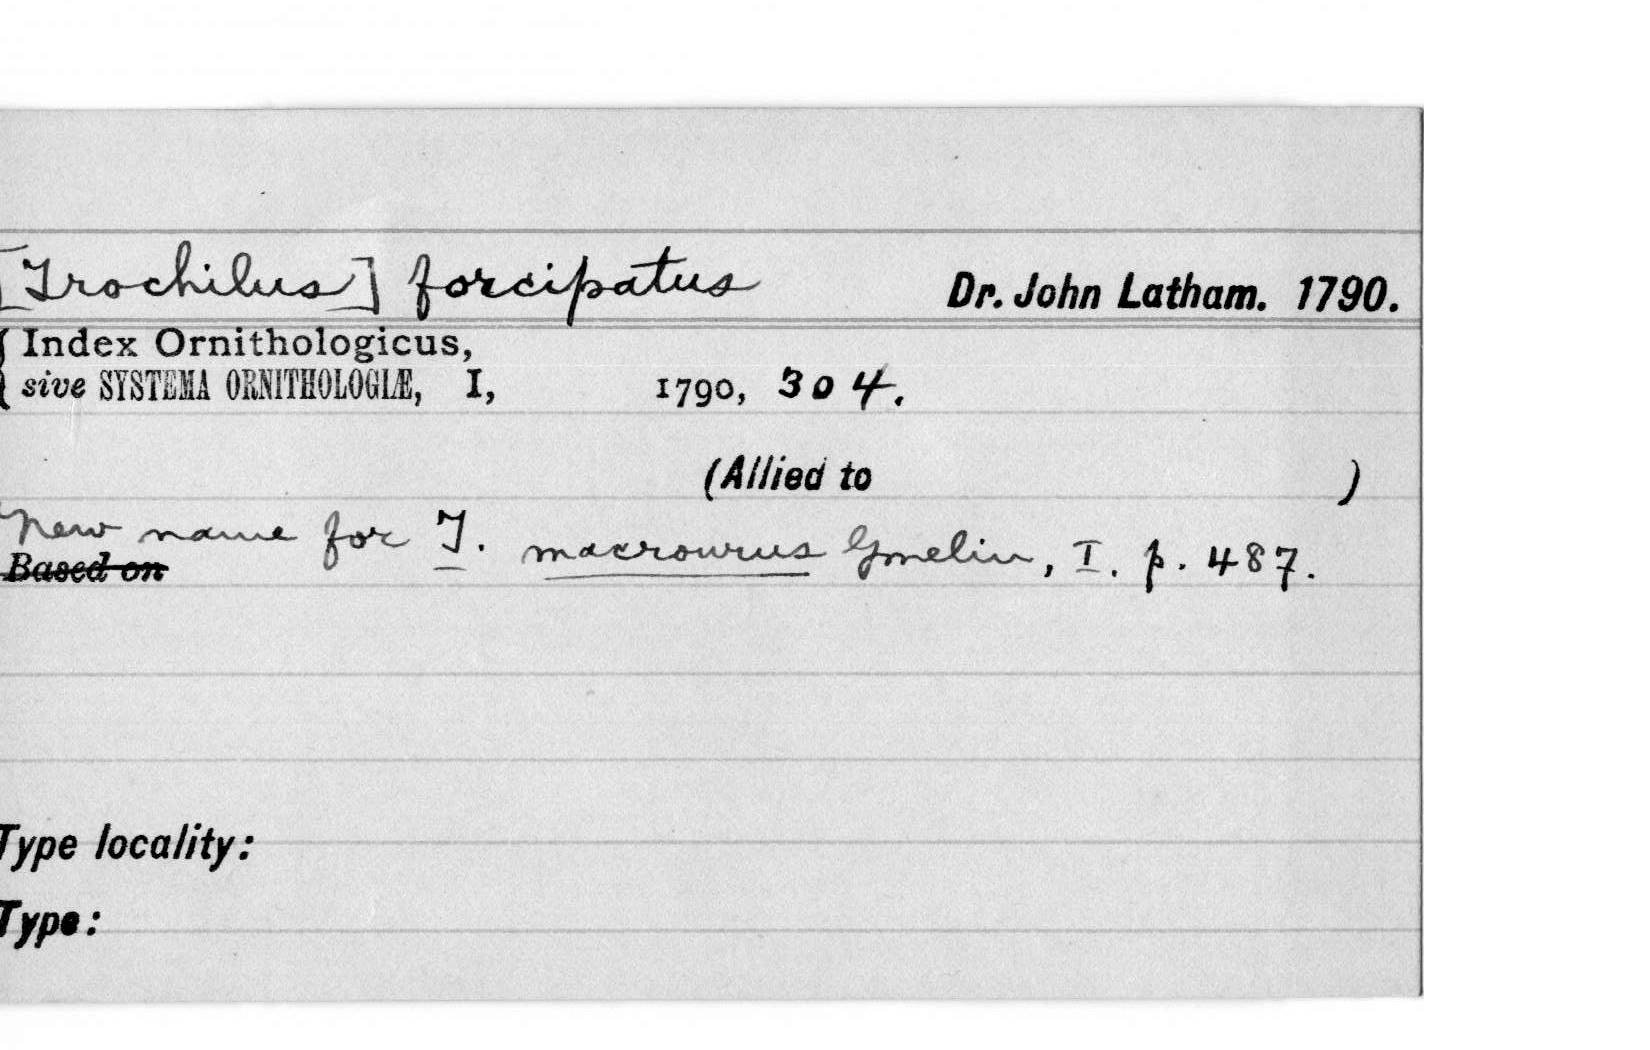 [Trochilus] forcipatus Dr. John Latham. 1790.
{ Index Ornithologicus,
sive SYSTEMA ORNITHOLOGIÆ, I, 1790, 304.
(Allied to )
New name for T. macrourus Gmelin, I. p. 487.
Based on
Type locality:
Type: